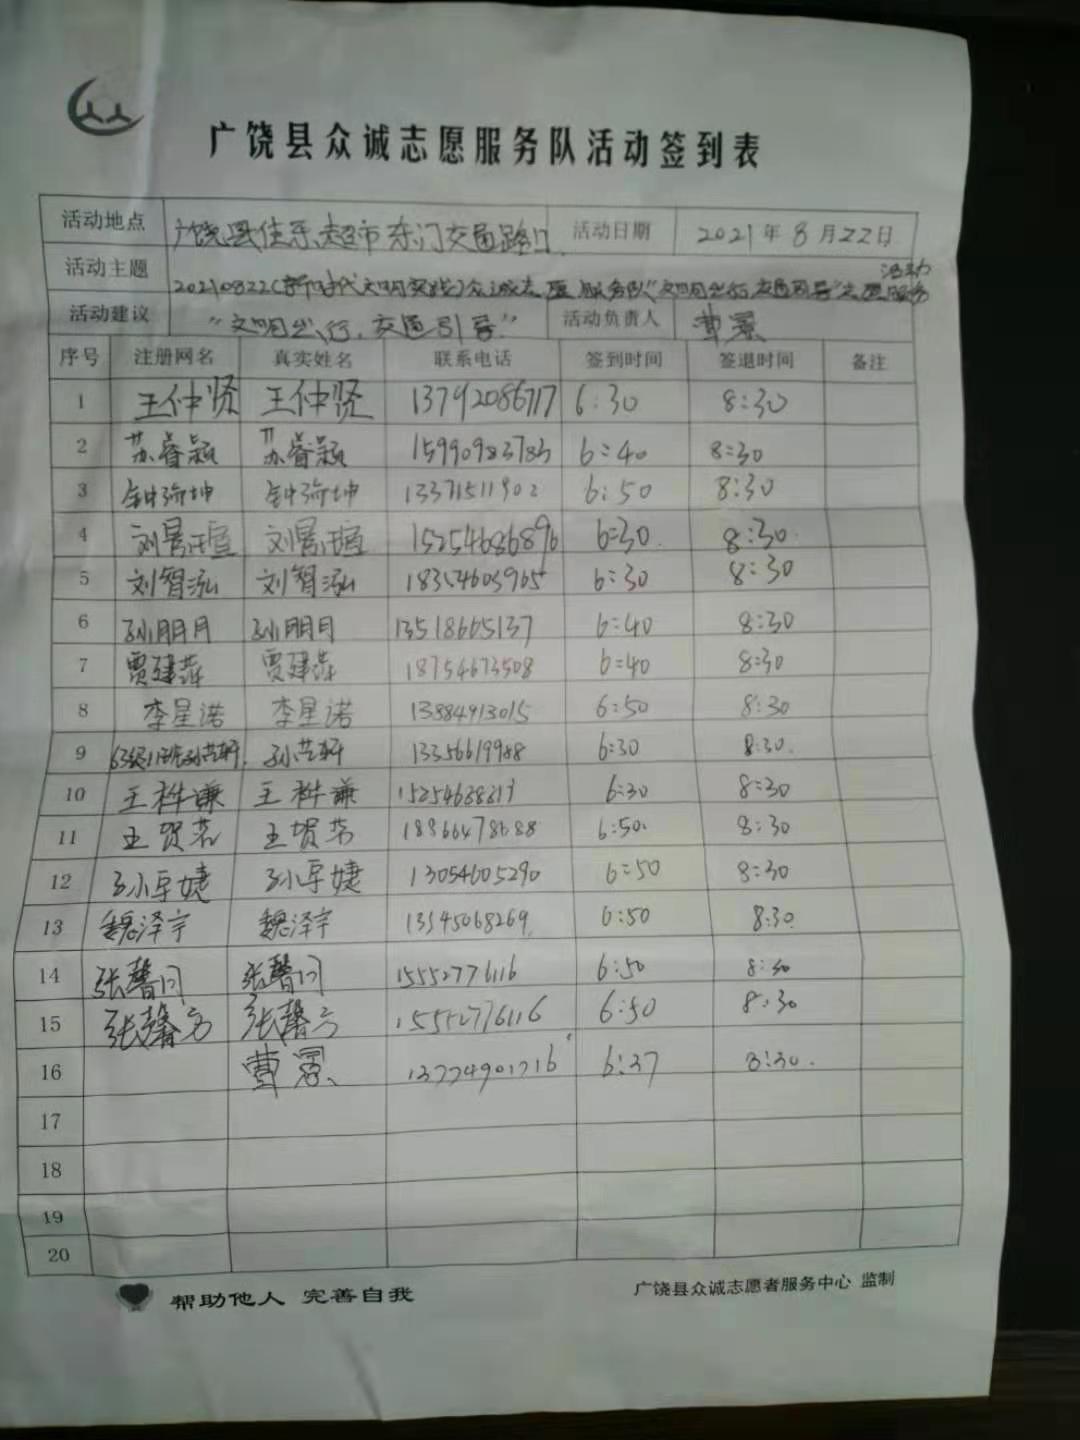 广饶县众诚志愿服务队活动签到表
活动地点 广饶县佳乐超市东门交通路口 活动日期 2021年8月22日
活动主题 20210822(新时代文明实践)众诚志愿服务队"文明出行,交通引导"志愿服务活动
活动建议 "文明出行,交通引导" 活动负责人 曹
序号 注册网名 真实姓名 联系电话 签到时间 签退时间 备注
1 王仲贤 王仲贤 13792086717 6:30 8:30
2 苏睿颖 苏睿颖 15990983783 6:40 8:30
3 钟沛坤 钟沛坤 13371511902 6:50 8:30
4 刘景瑄 刘景瑄 15254686896 6:30 8:30
5 刘智泓 刘智泓 18354603965 6:30 8:30
6 孙明月 孙明月 13518665137 6:40 8:30
7 贾建萍 贾建萍 18754673508 6:40 8:30
8 李星诺 李星诺 13884913015 6:50 8:30
9 6.3级11班孙艺轩 孙艺轩 13356619988 6:30 8:30
10 王梓谦 王梓谦 6:30 8:30
11 王贺茗 王贺茗 6:50 8:30
12 孙卓婕 孙卓婕 13054605290 6:50 8:30
13 魏泽宇 魏泽宇 13545068269 6:50 8:30
14 张馨闪 张馨闪 15552776116 6:50 8:30
15 张馨方 张馨方 15552776116 6:50 8:30
16 曹 6:37 8:30
17
18
19
20
帮助他人 完善自我 广饶县众诚志愿者服务中心 监制